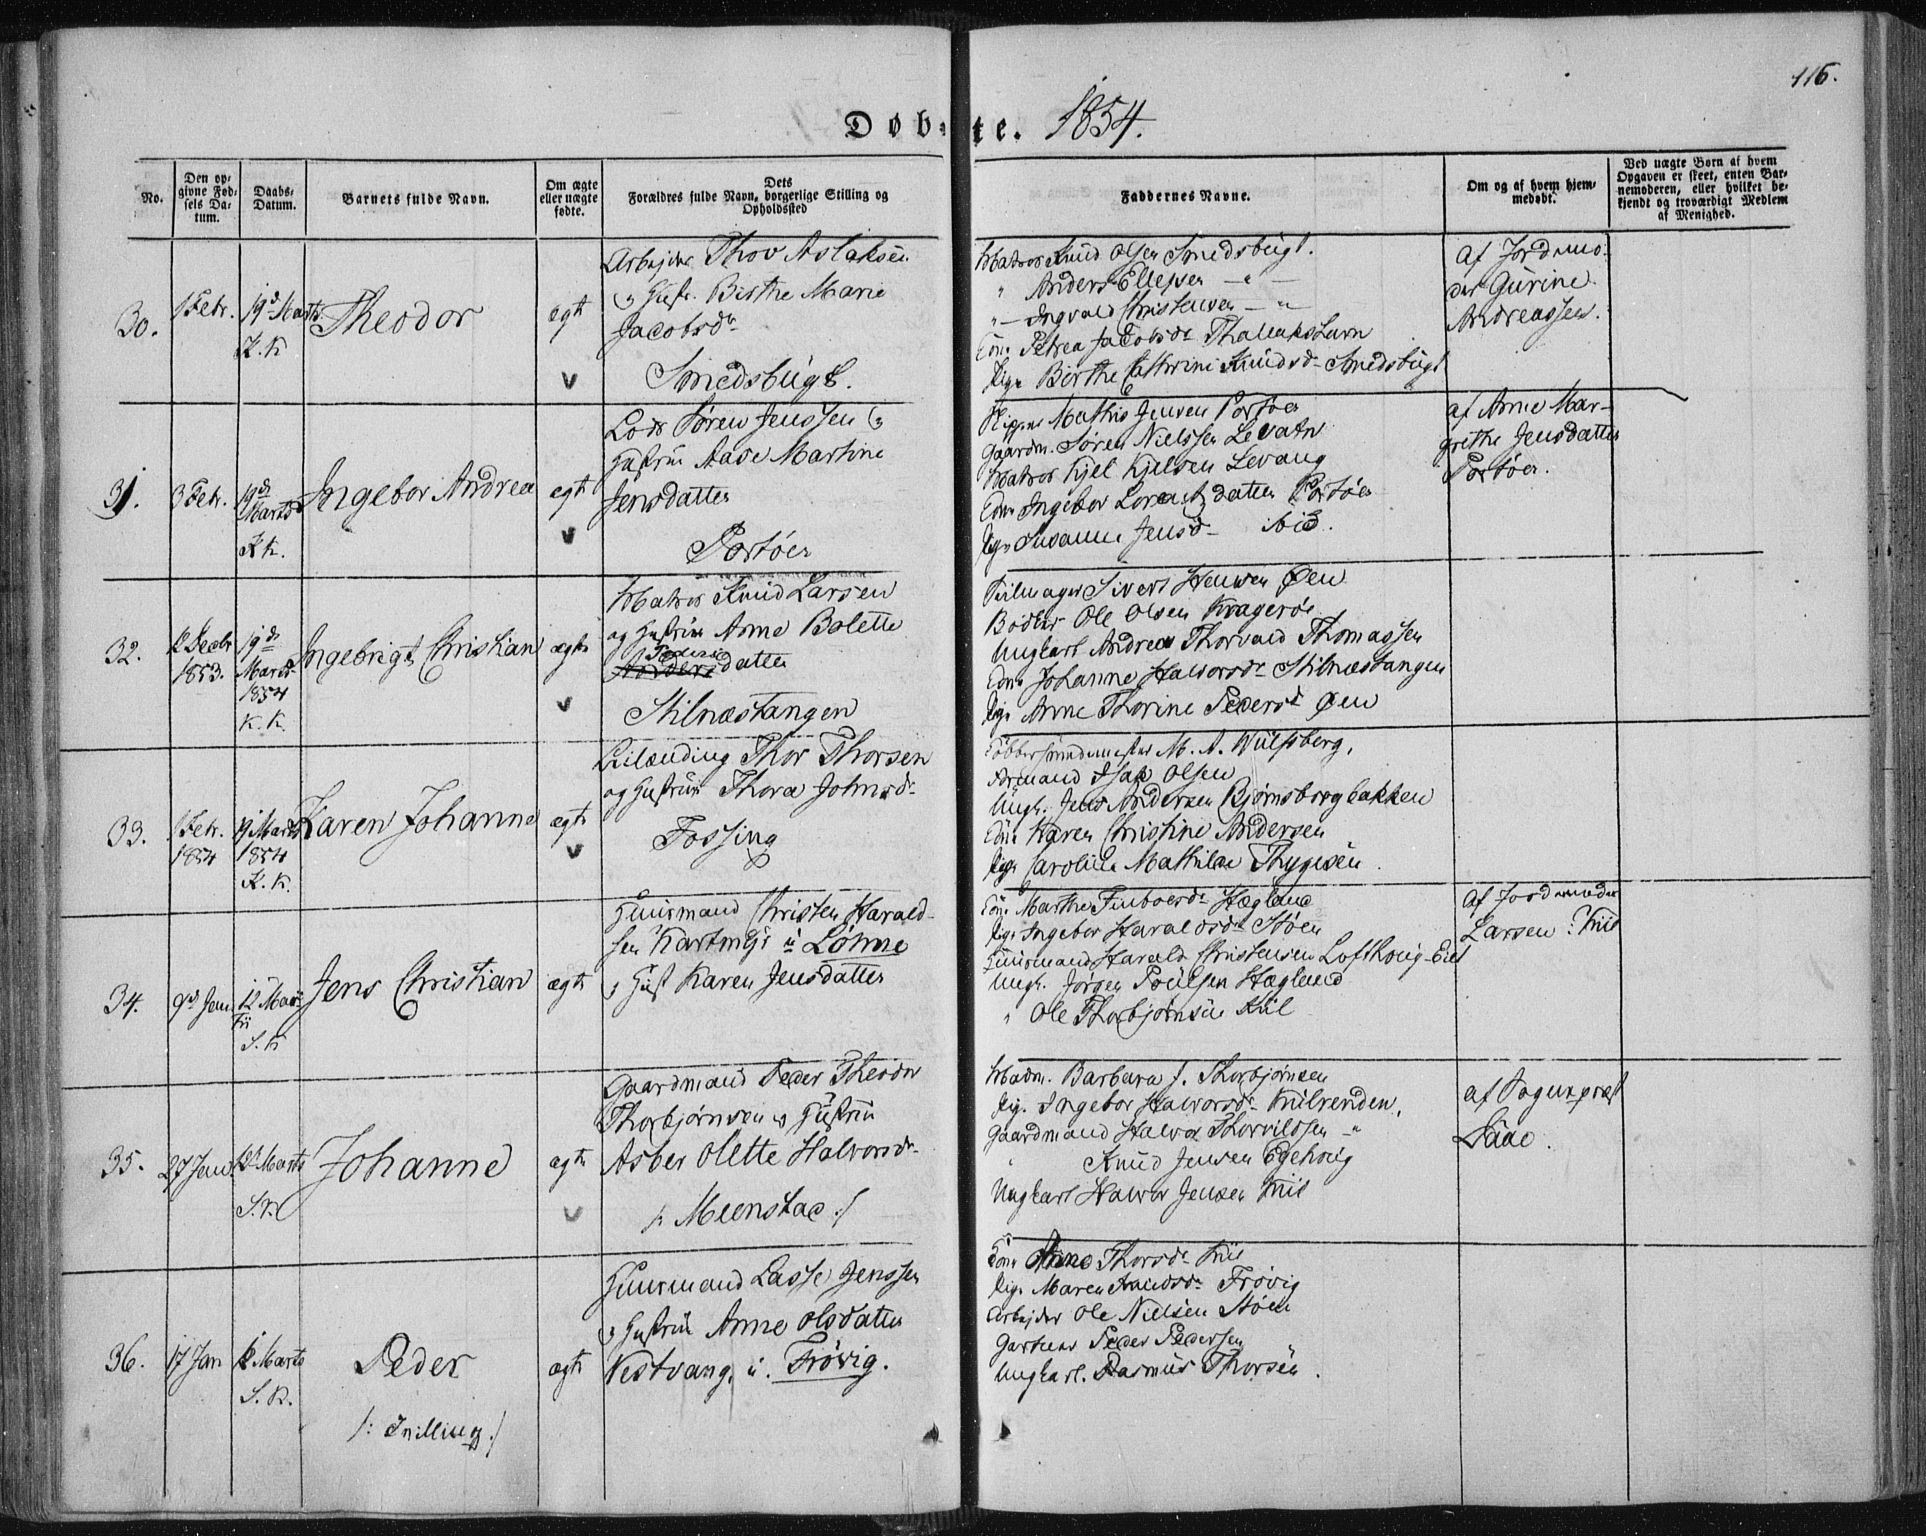 116.
Døbte. 1854.
No.
Den opgivne Fødsels Datum.
Daabs-Datum.
Barnets fulde Navn.
Om ægte eller uægte fødte.
Dets Forældres fulde Navn, borgerlige Stilling og Opholdssted
Faddernes Navne.
Om og af hvem hjemmedøbt.
Ved uægte Børn af hvem Opgaven er skeet, enten Barnemoderen, eller hvilket bekjendt og troværdigt Medlem af Menighed.
30.
1 Febr.
19de Marts
K. K
Theodor
ægt
Arbejder Thov Aslaksen
og Hustr. Birthe Marie
Jacobsdr
Smedsbugt.
Matros Knud Olsen Smedsbugt.
" Anders Ellefsen — " —
" — Ingvald Christensen — " —
Kone Petrea Jacobsdr Thallakshavn
Pige Birthe Cathrine Knudsdr Smedsbugt
af Jordmo-
der Gurine
Andreassen.
31.
3 Febr.
19de
Marts
K K.
Ingebor Andrea
ægt
Lods Søren Jenssen og
Hustrue Aase Martine
Jensdatter
Portøer
Skipper Mathis Jensen Portøer
Gaardm. Søren Nielssen Levatn
Matros Kjel Kjelsen Levang
Kone Ingebor Lorentzdatter Portøer
Pige Susanne Jensd — ibid.
af Anne Mar-
grethe Jensdatter
Portøer.
32.
12 Decbr
1853.
19de
Marts
1854
K. K.
Ingebrigt Christian
ægte
Matros Knud Larsen
og Hustrue Anne Bolette
Peders
Andersdatter
Stilnæstangen
Sivert Hansen Øen
Bødker Ole Olsen Kragerøe
Ungkarl Andreas Thorvald Thomassen
Kone Johanne Halvorsdr Stilnæstangen
Pige Anne Thorine Pedersdr Øen
33.
1 Febr.
1854
19 Marts
1854
K. K.
Karen Johanne
ægte
Thor Thorsen
og Hustrue Thora Johnsdr
Fossing
M. A. Wulfsberg,
Formand Isak Olsen
Ungk. Jens Andersen Bjørnsborgbakken
Kone Karen Christine Andersen
Pige Caroline Mathilde Thygesen.
34.
9de Jan.
12 Mar-
tii
S. K
Jens Christian
ægte
Huusmand Christen Harald-
sen Kartmyr u Løhne
og Hust Karen Jensdatter
Kone Marthe Finboesdr Hægland
Pige Ingebor Haraldsdr Støen
Huusmand Harald Christensen Lofthoug-Eiet
Ungk. Jørgen Poulsen Hægland
" Ole Thorbjørnsen Kiil
af Jordemoder
Larsen? Kiil
35.
27 Jan.
12 Marts
S. K
Johanne
ægte
Gaardmand Peder Theodor
Thorbjørnsen og Hustrue
Asber Olette Halvorsdr
/: Meenstad :/
Madm. Barbara J. Thorbjørnsen
Pig. Ingebor Halvorsdr Kiilrenden,
Gaardmand Halvor Thorvildsen — "
" Knud Jensen Egehoug
Ungkarl Halvor Jensen Kiil
af Sognepræst
Saae.
36.
17 Jan
12 Marts
S. K.
Peder
/: Tvilling :/
ægte
Huusmand Lasse Jenssen
og Hustrue Anne Olsdatter
Vestvang, u. Frøvig.
Kone Anne Thorsdr Kiil
Pige Maren Frøvig
Arbejder Ole Nielsen Støen
Gartner Peder Pedersen
Ungkarl. Rasmus Thorsen.